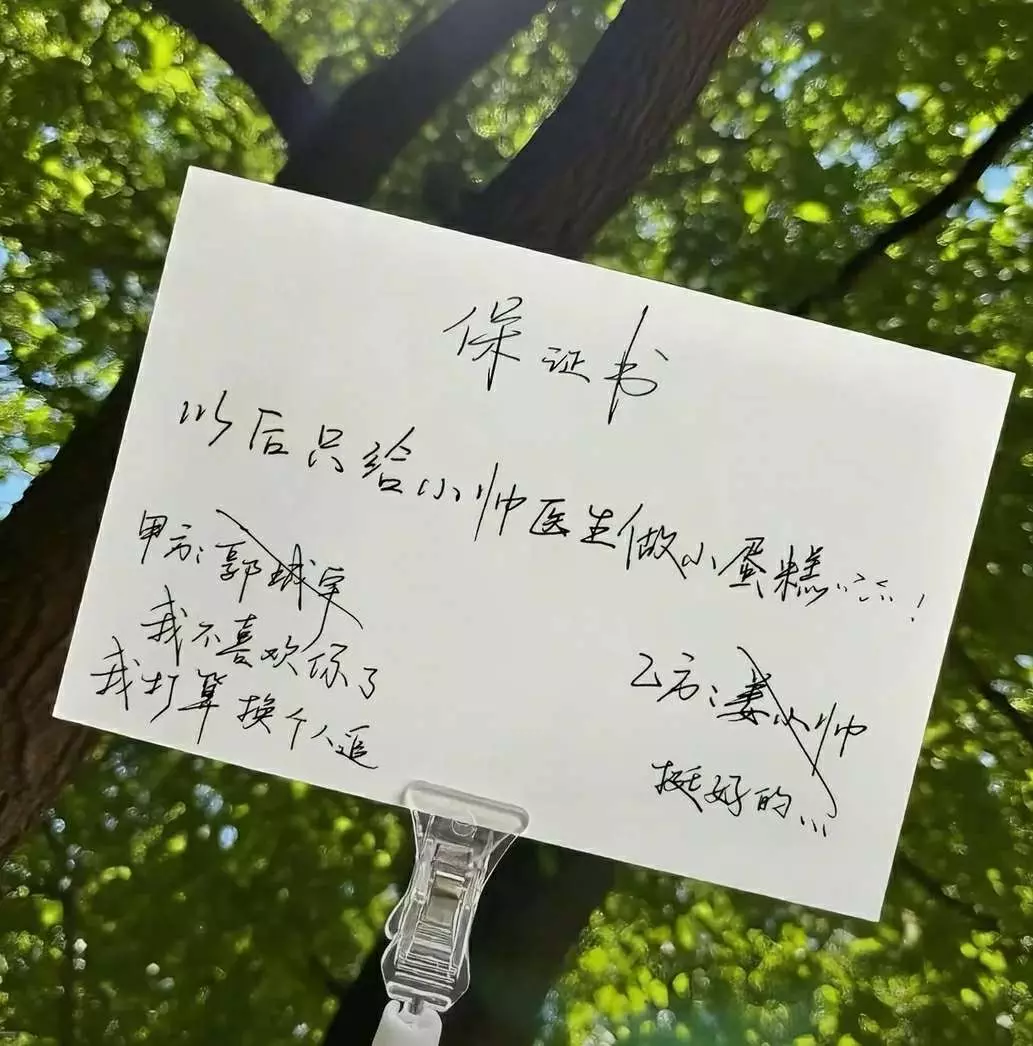 保证书
以后只给小帅医生做小蛋糕……!
甲方:郭城宇
我不喜欢你了
我打算换个人追
乙方:姜小帅
挺好的...